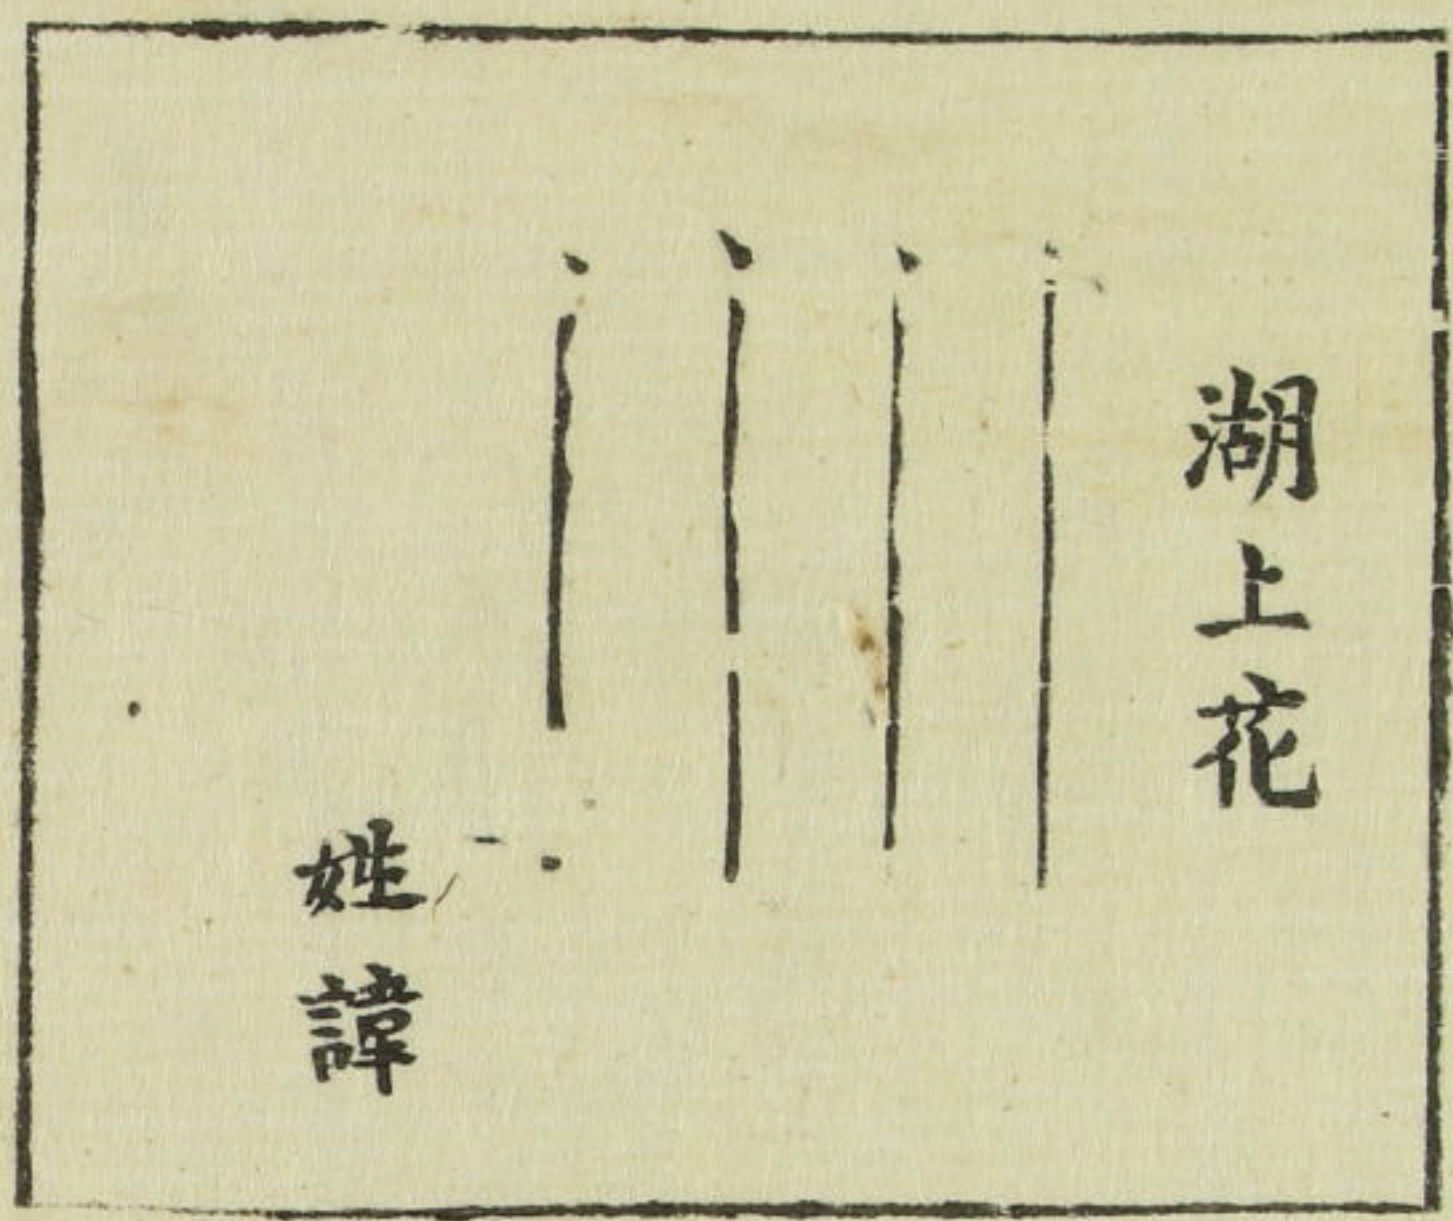 湖上花
姓諱